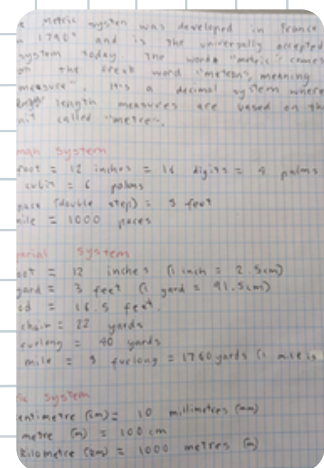 e metric system was developed in France
n 1790s and is the universally accepted
system today. The words "metric" comes
on the Greek word "metron", meaning
measure". It's a decimal system where
length measures are based on the
nit called "metre".
man System
foot = 12 inches = 16 digits = 4 palms
cubit = 6 palms
pace (double step) = 5 feet
mile = 1000 paces
perial System
oot = 12 inches (1 inch = 2.5cm)
yard = 3 feet (1 yard = 91.5cm)
od = 16.5 feet.
chain = 22 yards
furlong = 40 yards
mile = 8 furlong = 1760 yards (1 mile is
ic System
entimetre (cm) = 10 millimetres (mm)
metre (m) = 100cm
kilometre (km) = 1000 metres (m)